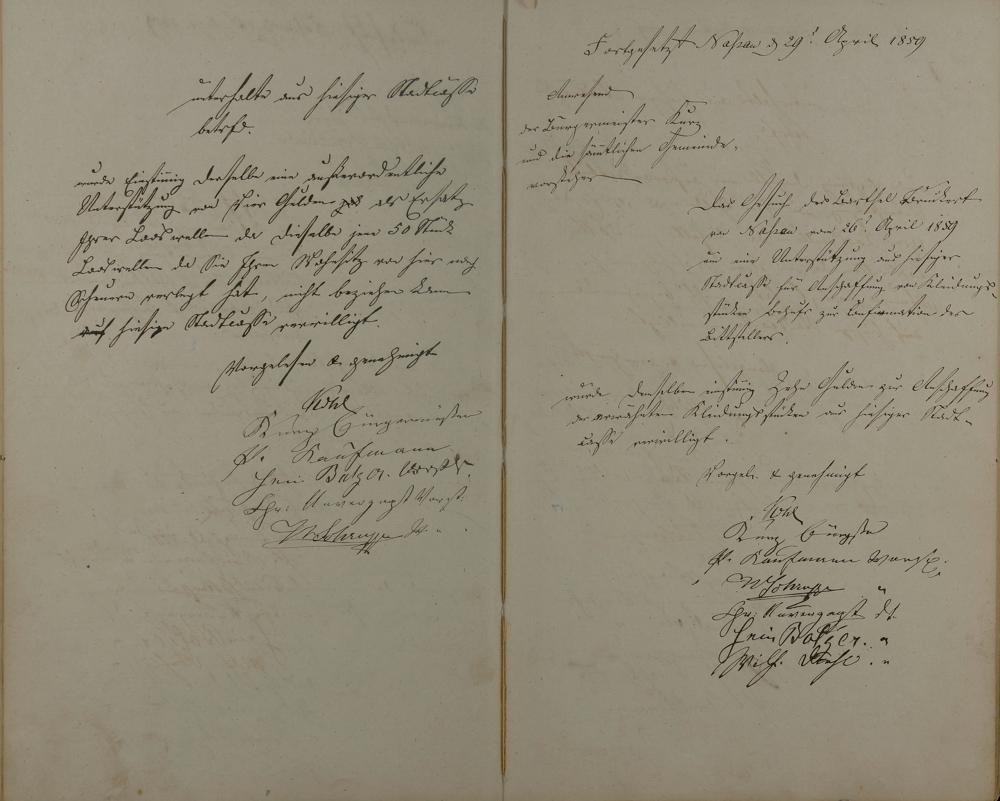 unterhalte aus hiesiger Stadtcasse
betrfd.
wurde Einstimig derselbe eine außerordentliche
Unterstützung von Vier Gulden als Ersatz
Ihrer Looswellen da dieselbe jene 50 Stück
Looswellen da Sie Ihren Wohnsitz von hier nach
Scheuern verlegt hat, nicht beziehen kann
auf hiesige Stadtcasse verwilligt.
Vorgelesen & genehmigt
Kurz Bürgermeister
Ph. Kaufmann
Hein. Balzer. Vorsth.
Chr. Unverzagt Vorst.
W Schrupp
Fortgesetzt Nassau d 29t. April 1859
Anwesend
der Bürgermeister Kurz
und die sämtlichen Gemeinde-
vorsteher
Das Gesuch des Barthel Bruckert
von Nassau vom 26t. April 1859
um eine Unterstützung aus hiesiger
Stadtcasse für Anschaffung von Kleidungs-
stücken behufs zur Confirmation des
Bittstellers.
wurde demselben einstimig Zehn Gulden zur Anschaffung
der erwähnten Kleidungsstücken aus hiesiger Stadt-
casse verwilligt.
Vorgel. & genehmigt
Kurz Bürgstr
Ph. Kaufmann Vorst.
W Schrupp "
Chr. Unverzagt dt.
Hein Balzer. "
Wilh. "